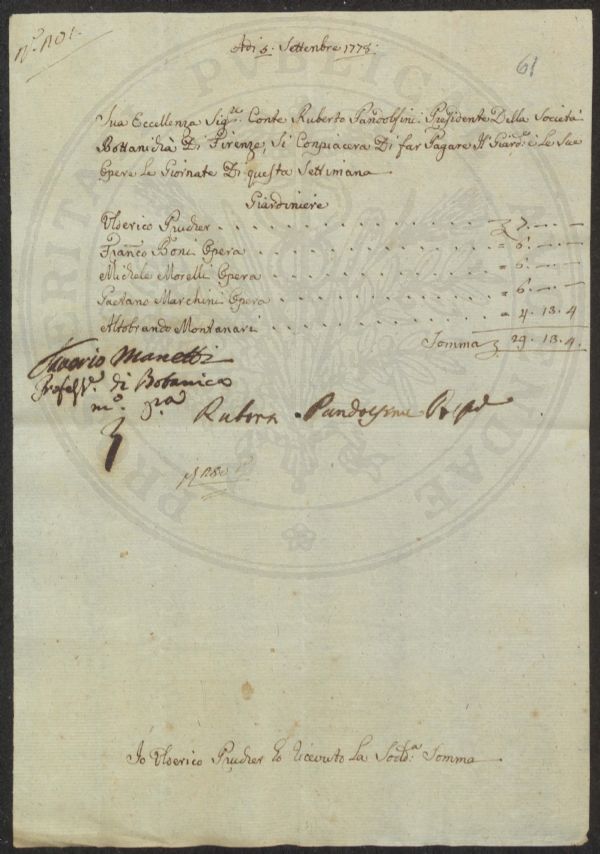 N.º 101.
Adi 5. Settembre 1778.
61
Sua Eccellenza Sig.re Conte Ruberto Pandolfini: Presidente Della Società
Bottanicha Di Firenze, Si Conpiacera Di far Pagare Al Giard.e e Le Sue
Opere Le Giornate Di questa Settimana
Giardiniere
Ulderico Prucher 7. —
Franc.o Boni Opera = 6. —
Michele Morelli Opera = 6. —
Gaetano Marchini Opera = 6. —
Altobrando Montanari = 4. 13. 4
Somma 29. 13. 4.
Saverio Manetti
Profess.re di Botanica
m.o p.a
Ruberto Pandolfini
Io Ulderico Prucher ho ricevuto La Sodd.a Somma